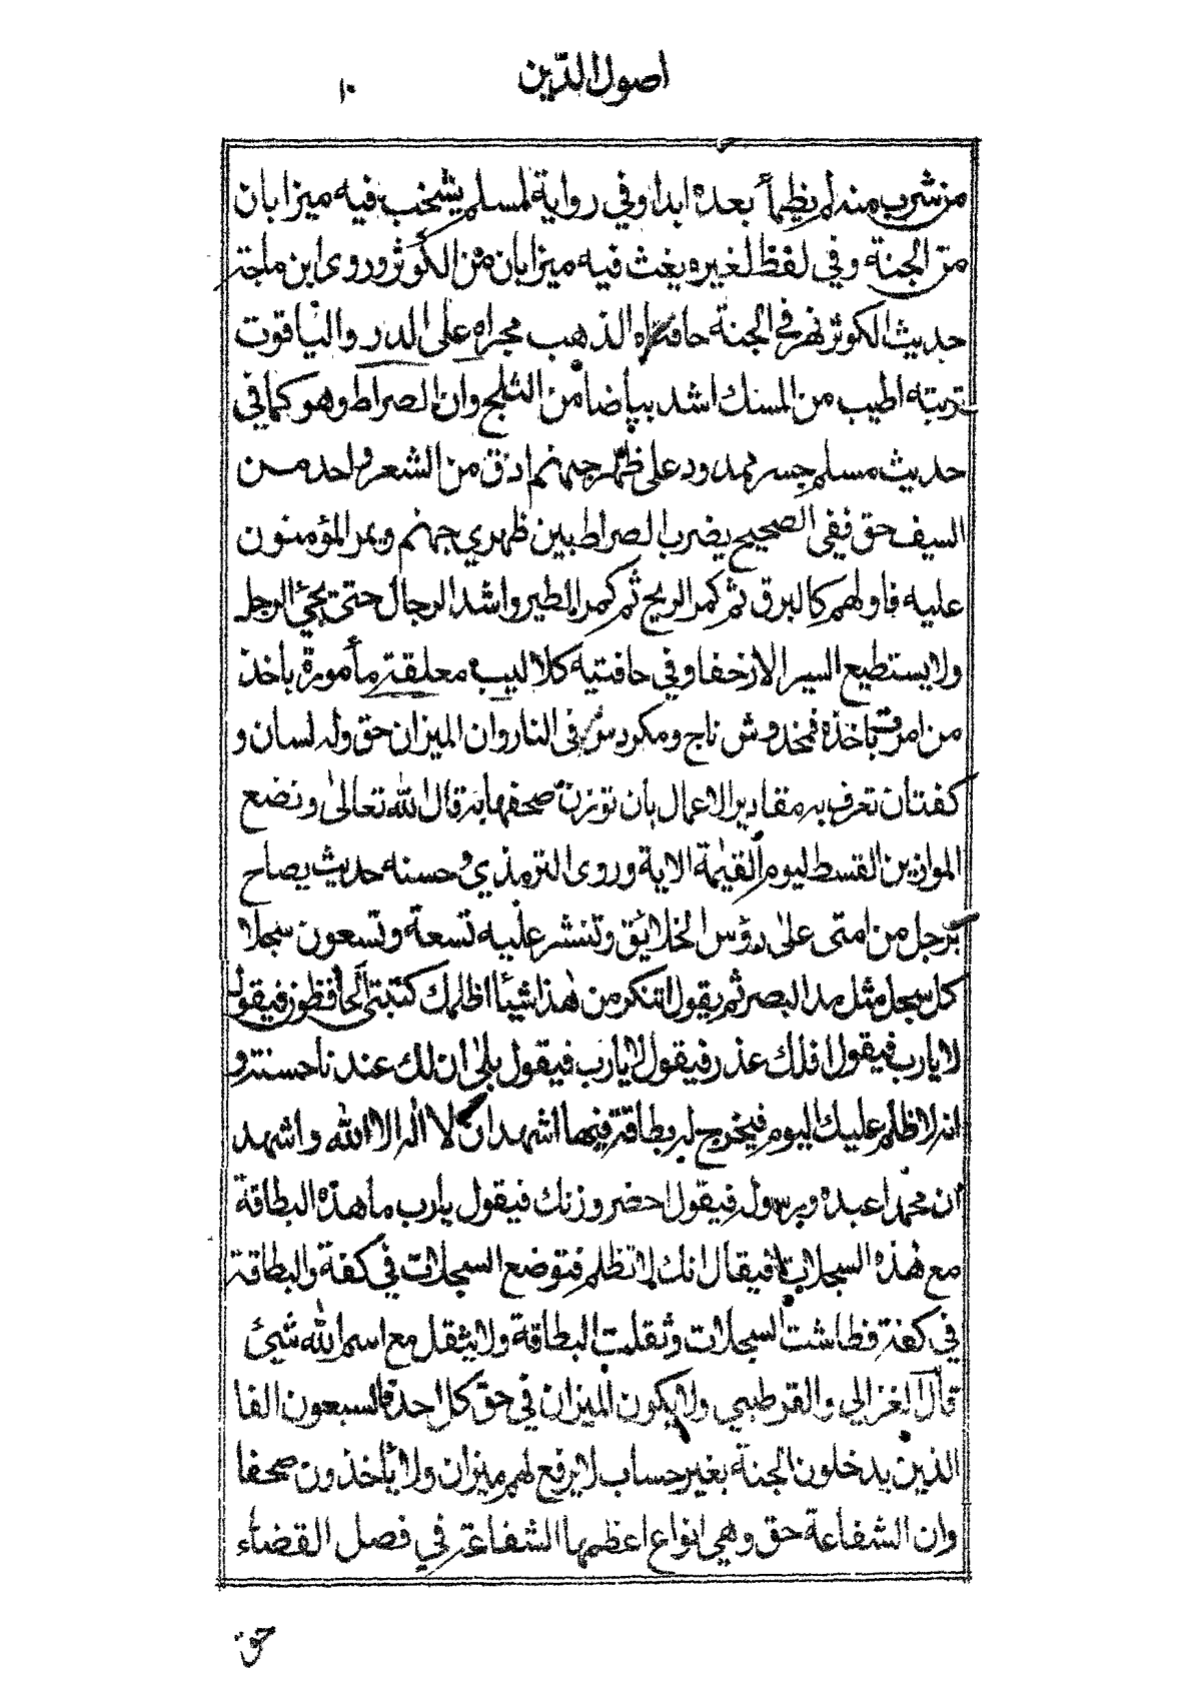 اصول الدين
١٠
من شرب منه لم يظمأ بعده ابدا وفي رواية لمسلم يشخب فيه ميزابان
من الجنة وفي لفظ لغيره يغث فيه ميزابان من الكوثر وروى ابن ماجة
حديث الكوثر نهر في الجنة حافتاه الذهب مجراه على الدر والياقوت
تربته اطيب من المسك اشد بياضا من الثلج وان الصراط وهو كما في
حديث مسلم جسر ممدود على ظهر جهنم ادق من الشعر واحد من
السيف حق ففي الصحيح يضرب الصراط بين ظهري جهنم ويمر المؤمنون
عليه فاولهم كالبرق ثم كمر الريح ثم كمر الطير واشد الرجال حتى يجئ الرجل
ولا يستطيع السير الا زحفا وفي حافتيه كلاليب معلقة مأمورة باخذ
من امرت باخذه فمخدوش ناج ومكردس في النار وان الميزان حق وله لسان و
كفتان تعرف به مقادير الاعمال بأن توزن صحفها به قال الله تعالى ونضع
الموازين القسط ليوم القيمة الاية وروى الترمذي وحسنه حديث يصاح
برجل من امتى على رؤس الخلائق وتنشر عليه تسعة وتسعون سجلا
كل سجل مثل مد البصر ثم يقول اتنكر من هذا شيئا اظلمك كتبتي الحافظون فيقول
لا يارب فيقول افلك عذر فيقول لا يارب فيقول بلى ان لك عندنا حسنة و
انه لا ظلم عليك اليوم فيخرج له بطاقة فيها اشهد ان لا اله الا الله واشهد
ان محمدا عبده ورسوله فيقول احضر وزنك فيقول يارب ما هذه البطاقة
مع هذه السجلات فيقال انك لا تظلم فتوضع السجلات في كفة والبطاقة
في كفة فطاشت السجلات وثقلت البطاقة ولا يثقل مع اسم الله شئ
قال الغزالي والقرطبي ولا يكون الميزان في حق كل احد فالسبعون الفا
الذين يدخلون الجنة بغير حساب لا يرفع لهم ميزان ولا يأخذون صحفا
وان الشفاعة حق وهي انواع اعظمها الشفاعة في فصل القضاء
حق